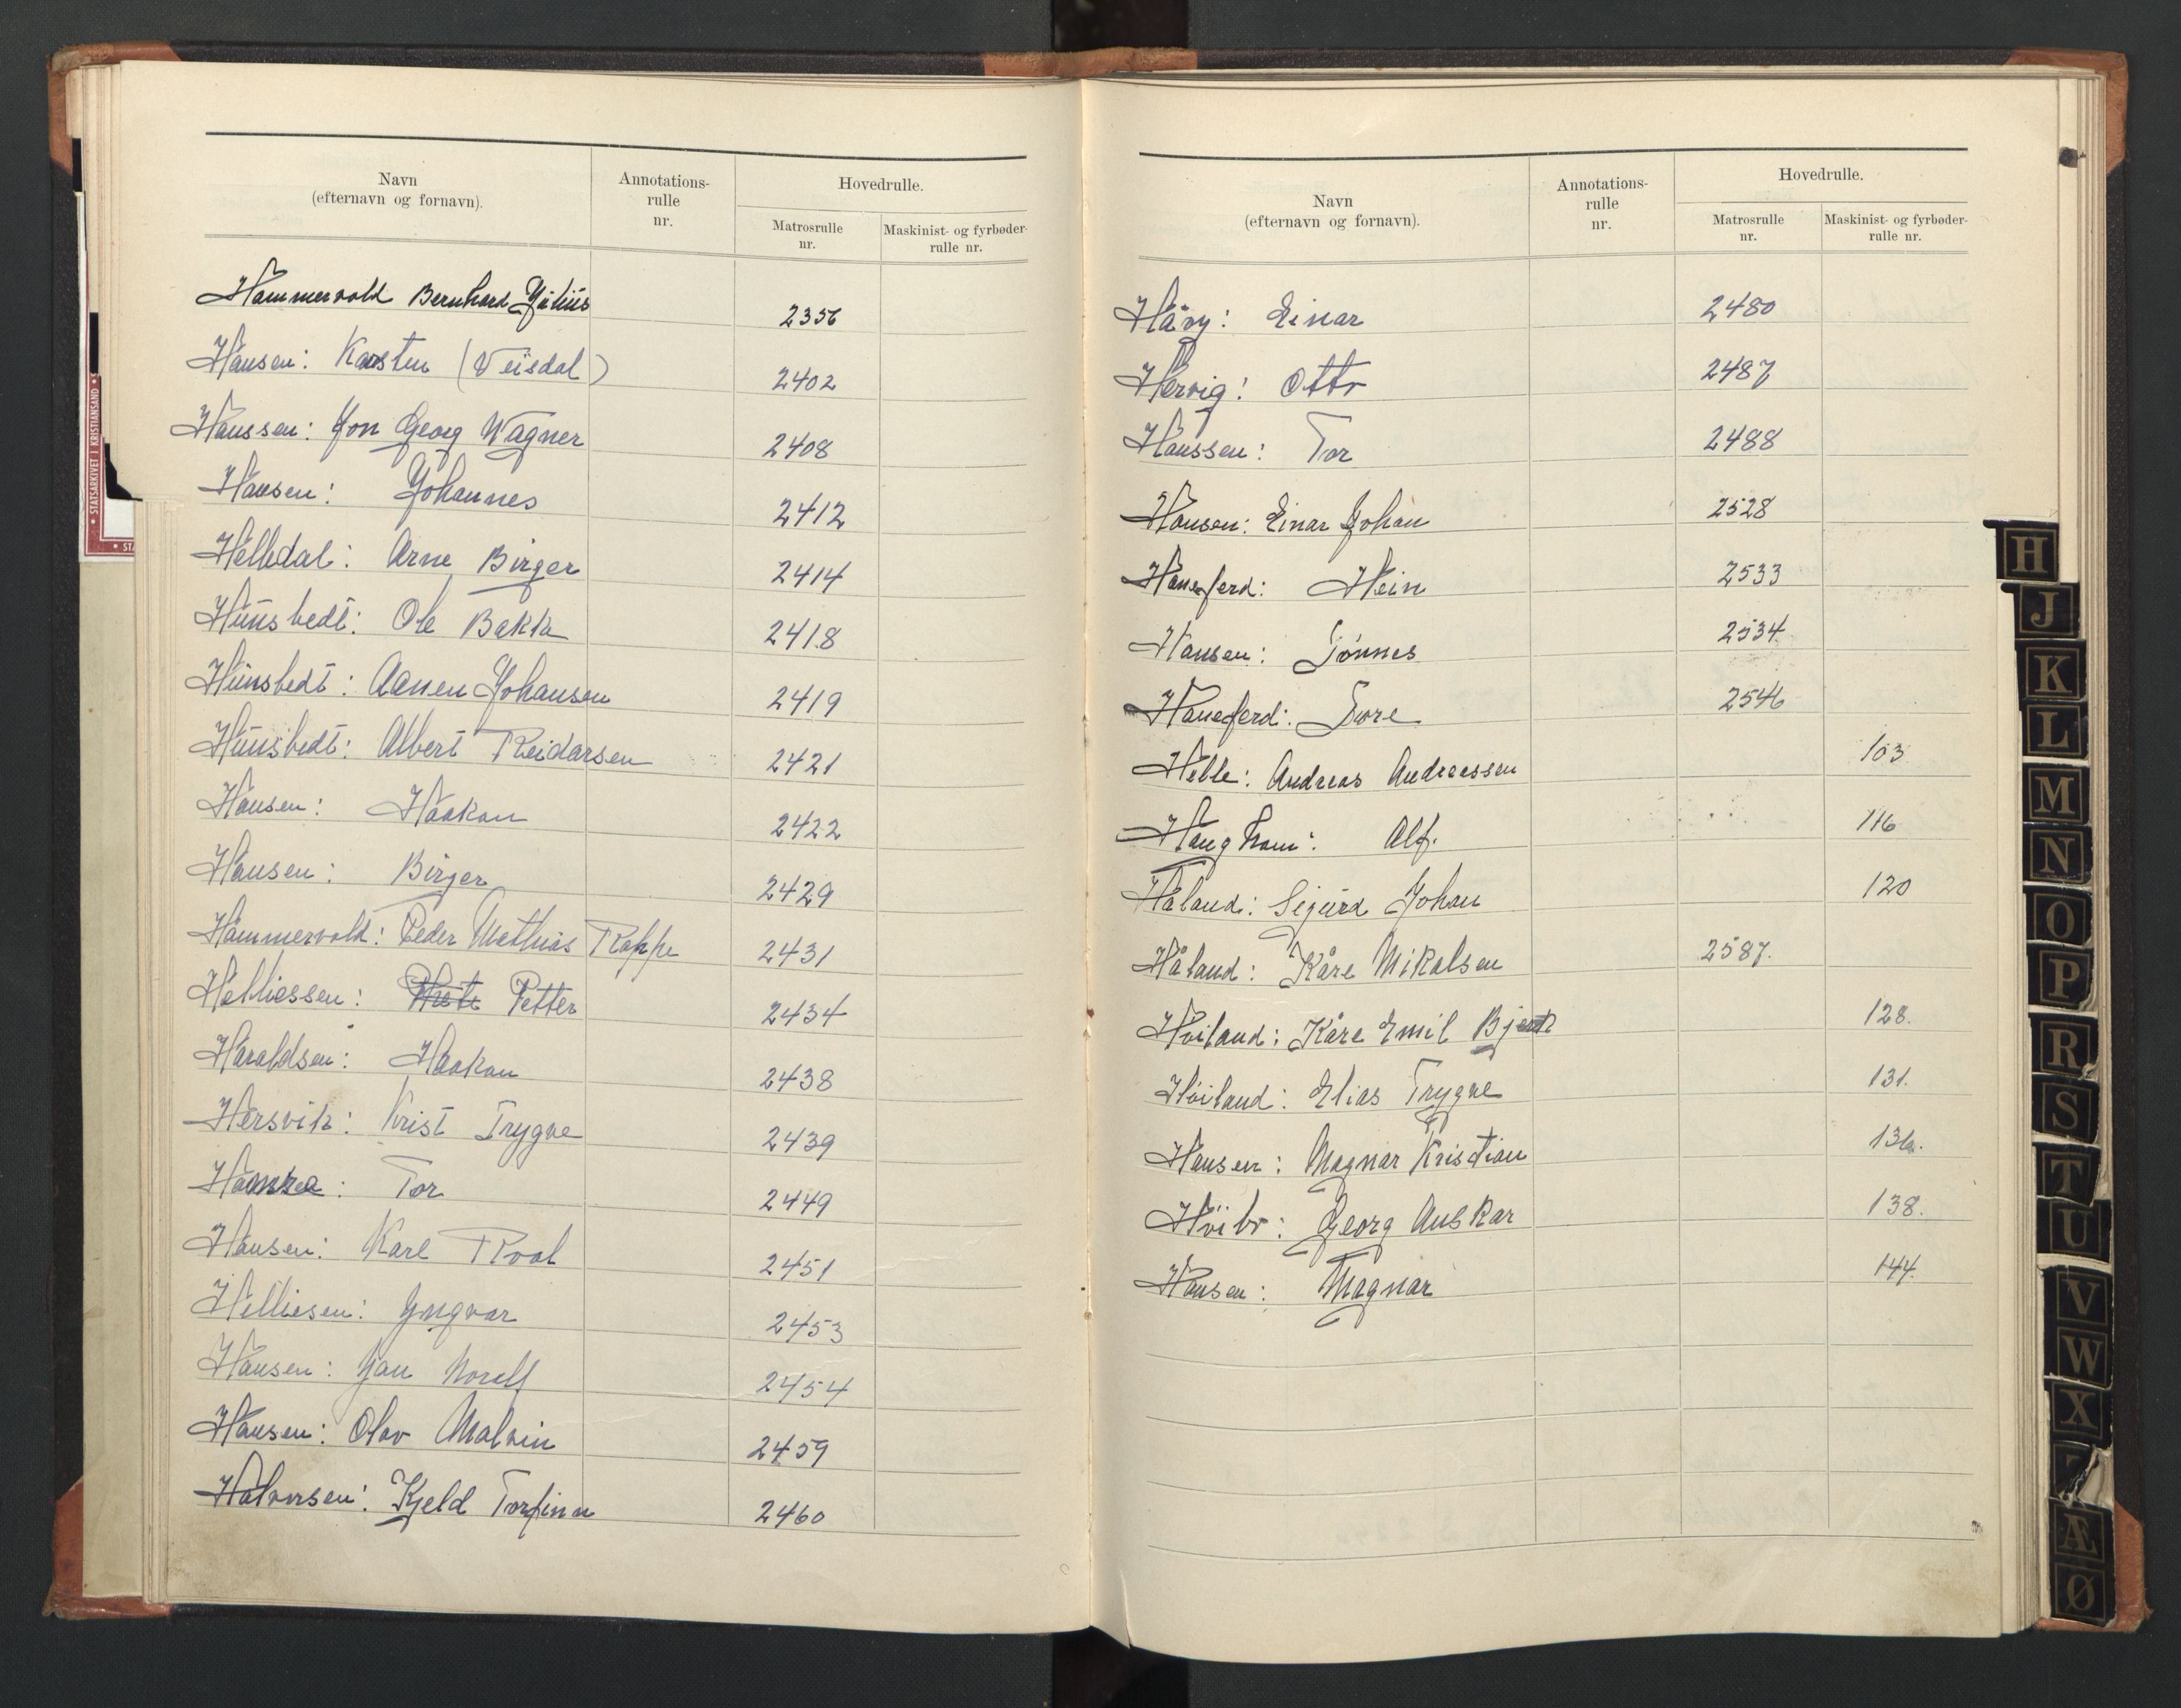 Navn
(efternavn og fornavn).
Annotations-
rulle
nr.
Hovedrulle.
Matrosrulle
nr.
Maskinist- og fyrbøder-
rulle nr.
Hammervold Bernhard Julius 2356
Hansen: Karsten (Veisdal) 2402
Hanssen: Jon Georg Wagner 2408
Hansen: Johannes 2412
Helledal: Arne Birger 2414
Hunsbedt: Ole Bakke 2418
Hunsbedt: Aanen Johansen 2419
Hunsbedt: Albert Reidarsen 2421
Hansen: Haakon 2422
Hansen: Birger 2429
Hammervold: Peder Mathias Rappe 2431
Helliessen: Petter 2434
Haraldsen: Haakon 2438
Hersvik: Krist Trygve 2439
Tor 2449
Hansen: Karl Roal 2451
Helliesen: Yngvar 2453
Hansen: Jan Noralf 2454
Hansen: Olav Malvin 2459
Halvorsen: Kjeld Torfinn 2460
Navn
(efternavn og fornavn).
Annotations-
rulle
nr.
Hovedrulle.
Matrosrulle
nr.
Maskinist- og fyrbøder-
rulle nr.
Håvy: Einar 2480
Hervig: Otto 2487
Hanssen: Tor 2488
Hansen: Einar Johan 2528
Haneferd: Hein 2533
Hansen: Tønnes 2534
Haneferd: Tore 2546
Helle: Andreas Andreassen 103
Haughom: Alf. 116
Håland: Sigurd Johan 120
Håland: Kåre Mikalsen 2587.
Høiland: Kåre Emil 128.
Høiland: Elias Trygve 131.
Hansen: Magnar Kristian 136.
Høibo: Georg Auskar 138.
Hansen: Magnar 144.
H
J
K
L
M
N
O
P
R
S
T
U
V
W
X
Æ
Ø
• STATSARKIVET I KRISTIANSAND •